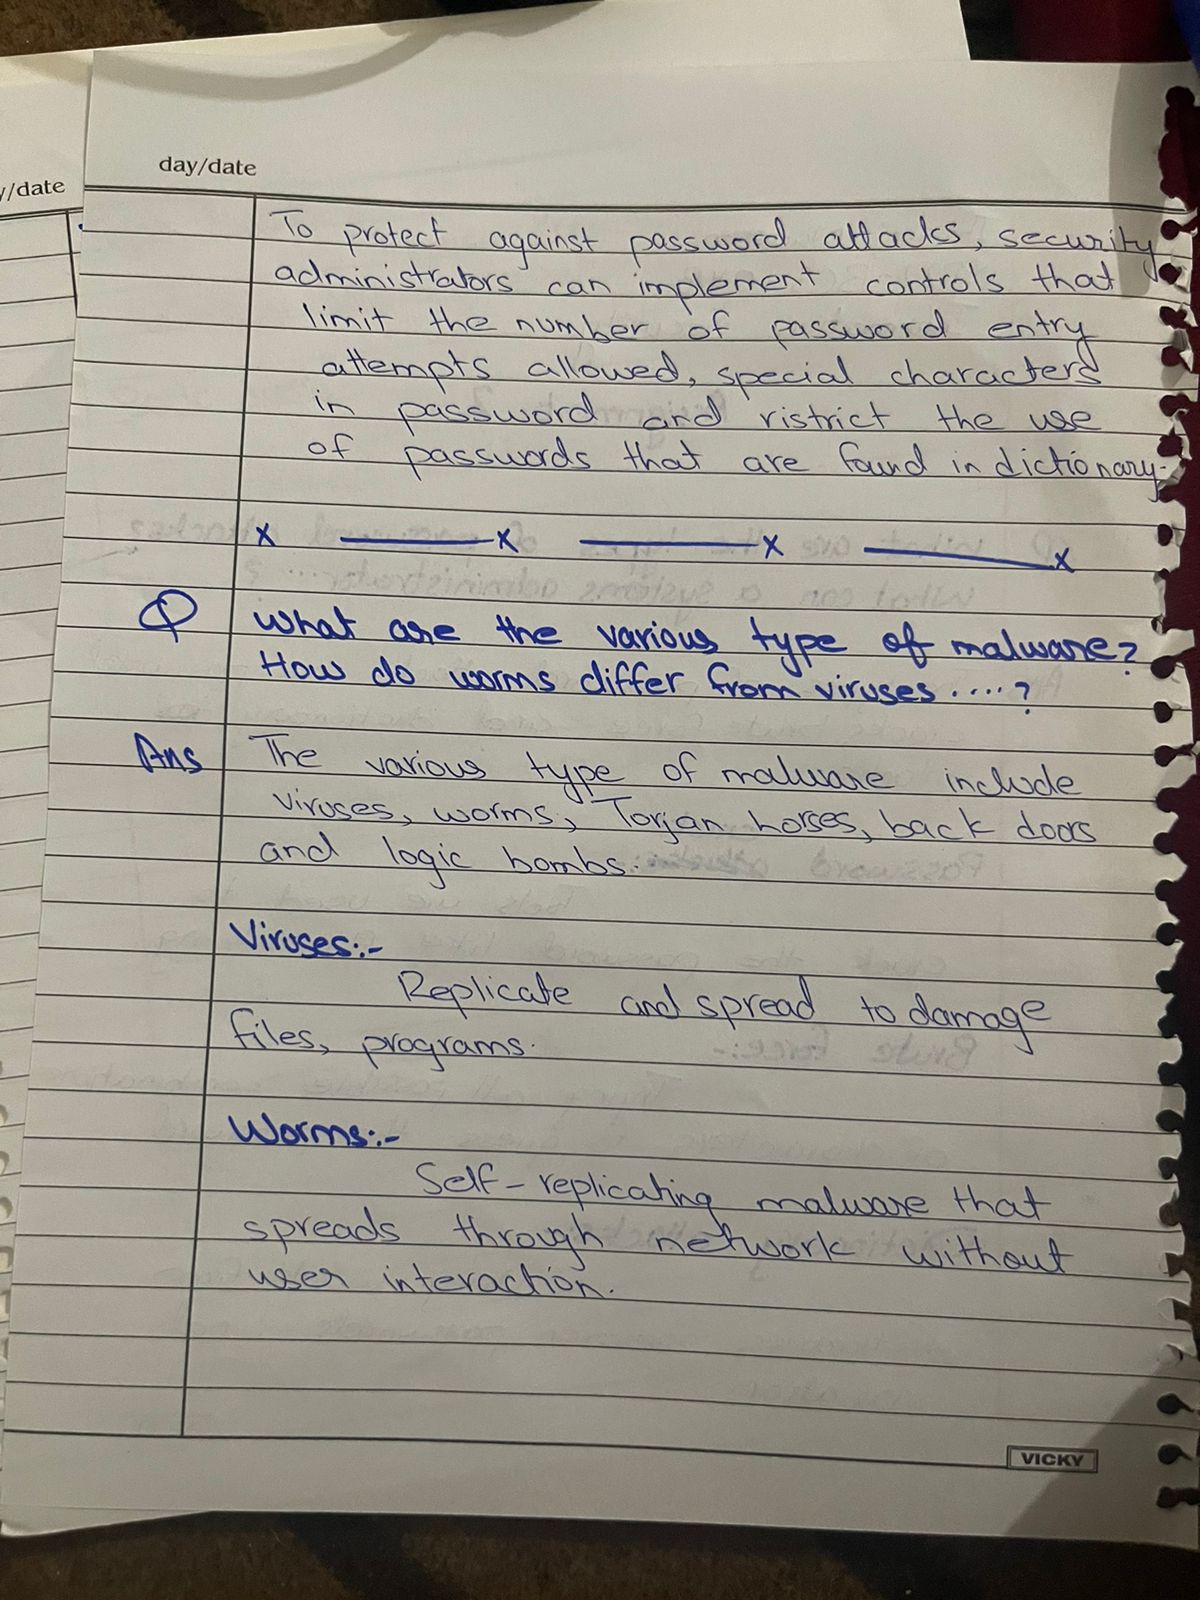 day/date
y/date
To protect against password attacks, security
administrators can implement controls that
limit the number of password entry
attempts allowed, special characters
in password and ristrict the use
of passwords that are found in dictionary.
x — x — x — x
Q What are the various type of malware?
How do worms differ from viruses.....?
Ans The various type of malware include
viruses, worms, Torjan horses, back doors
and logic bombs.
Viruses:-
Replicate and spread to damage
files, programs.
Worms:-
Self-replicating malware that
spreads through network without
user interaction.
VICKY